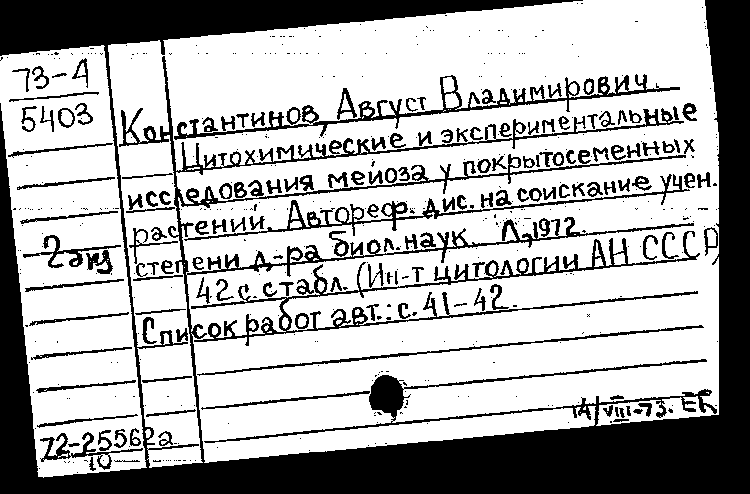 73-4
5403
Константинов, Август Владимирович.
Цитохимические и экспериментальные
исследования мейоза у покрытосеменных
растений. Автореф. дис. на соискание учен.
2 экз
степени д-ра биол. наук. Л., 1972.
42 с. с табл. (Ин-т цитологии АН СССР)
Список работ авт.: с. 41-42.
14/VIII-73. ЕБ
72-25562а
10